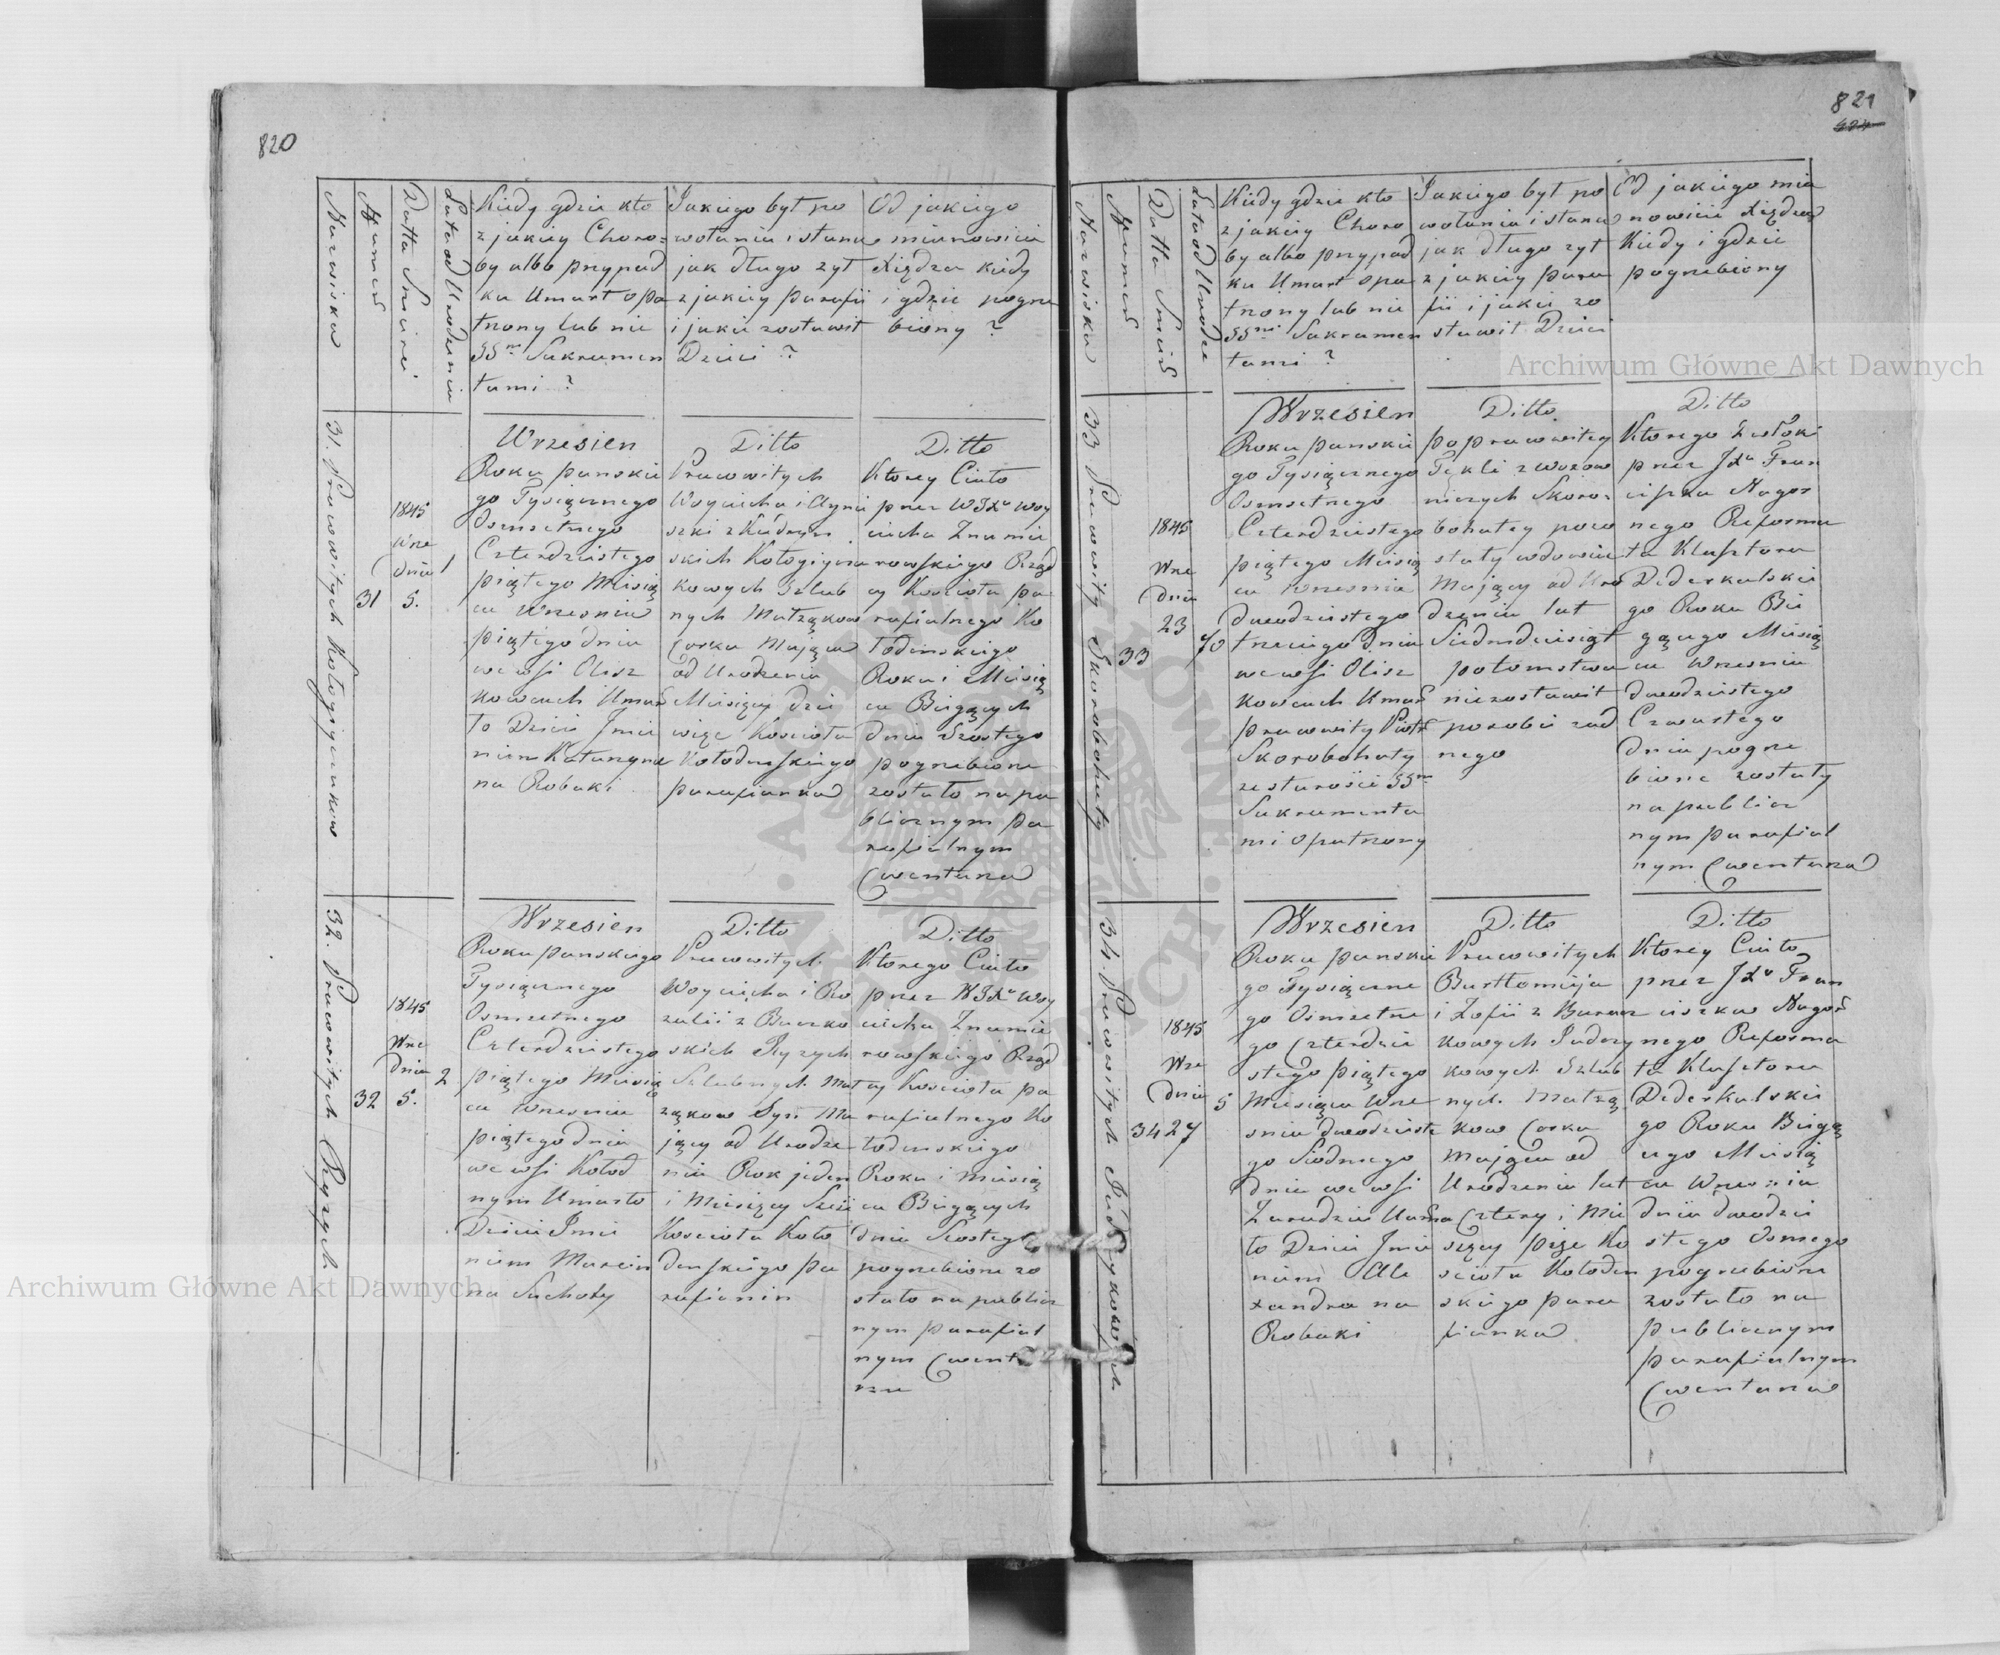 820
Nazwiska
Numer
Datta Smierci
Lata od Urodzenia
Kiedy gdzie kto
z jakiey Choro=
by albo przypad
ku Umarł opa
trzony lub nie
SSmi Sakramen
tami ?
Jakiego był po
wołania i stanu
jak długo zył
z jakiey parafii
i jakie zostawił
Dzieci ?
Od jakiego
mianowicie
Xiędza kiedy
i gdzie pogrze
biony ?
31. Pracowitych Kołogigenkow
31
1845
Wrze
dnia
5.
1
Wrzesien
Roku Panskie
go Tysiącznego
Osmsetnego
Czterdziestego
piątego Miesią
ca Wrzesnia
piątego dnia
we wsi Olisz
kowcach Umar
ło Dziecie Imie
niem Katarzyna
na Robaki
Ditto
Pracowitych
Woyciecha i Agni
szki z
skich
kowych Szlub
nych Małżąkow
Corka Mająca
od Urodzenia
Miesięcy dzie
więc Kościoła
Kołodenskiego
parafianka
Ditto
Ktorey Ciało
przez WJXa Woy
ciecha Znamie
rowskiego Rząd
cy Kościoła pa
rafialnego Ko
łodenskiego
Roku i Miesią
ca Bieżących
dnia Szostego
pogrzebione
zostało na pu
blicznym Pa
rafialnym
Cmentarzu
32. Pracowitych Ryzych
32
1845
Wrze
dnia
5.
2
Wrzesien
Roku Panskiego
Tysiącznego
Osmsetnego
Czterdziestego
piątego Miesią
ca Wrzesnia
piątego dnia
we wsi Kołod
nym Umarło
Dziecie Imie
niem Marcin
na Suchoty
Ditto
Pracowitych
Woyciecha i Ro
zalii z Baczko
skich Ryzych
Szlubnych Mał
żąkow Syn Ma
jący od Urodze
nia Rok jeden
i Miesięcy Sześć
Kościoła Koło
denskiego pa
rafianin
Ditto
Ktorego Ciało
przez WJXa Woy
ciecha Znamie
rowskiego Rząd
cy Kościoła pa
rafialnego Ko
łodenskiego
Roku i Miesią
ca Bieżących
dnia Szostego
pogrzebione zo
stało na publicz
nym parafial
nym Cmenta
rzu
821
Nazwiska
Numer
Datta Smierci
Lata od Urodze
Kiedy gdzie kto
z jakiey Choro
by albo przypad
ku Umarł opa
trzony lub nie
SSmi Sakramen
tami ?
Jakiego był po
wołania i stanu
jak długo zył
z jakiey para
fii i jakie zo
stawił Dzieci
Od jakiego mia
nowicie Xiędza
Kiedy i gdzie
pogrzebiony
33 Pracowity Skorobohaty
33
1845
Wrze
dnia
23
70
Wrzesien
Roku Panskie
go Tysiącznego
Osmsetnego
Czterdziestego
piątego Miesią
ca Wrzesnia
dwodziestego
trzeciego dnia
we wsi Olisz
kowcach Umarł
pracowity Piotr
Skorobohaty
ze starości SSmi
Sakramenta
mi opatrzony
Ditto
po pracowitey
Tękli z
Skoro-
bohatey pozo
stały wdowiec
Mający od Uro
dzenia lat
Siedmdziesiąt
potomstwa
nie zostawił
po sobie zad
nego
Ditto
Ktorego Zwłoki
przez JXa Fran
ciszka Nagor
nego Reforma
ta Klasztoru
Dederkalskie
go Roku Bie
żącego Miesią
ca Wrzesnia
dwodziestego
Czwartego
dnia pogrze
bione zostały
na publicz
nym parafial
nym Cmentarzu
34. Pracowitych Pudrzykowych
34
1845
Wrze
dnia
27
5
Wrzesien
Roku Panskie
go Tysiączne
go Osmsetne
go Czterdzie
stego piątego
Miesiąca Wrze
snia dwodzieste
go Siodmego
dnia we wsi
Zarudziu Umar
ło Dziecie Imie
niem Ale
xandra na
Robaki
Ditto
Pracowitych
Bartłomieja
i Zofii z
kowych Pudrzy
kowych Szlub
nych Małzą
kow Corka
Mająca od
Urodzenia lat
Cztery i Mie
sięcy pięć Ko
scioła Kołoden
skiego para
fianka
Ditto
Ktorey Ciało
przez JXa Fran
ciszka Nagor
nego Reforma
ta Klasztoru
Dederkalskie
go Roku Bieżą
cego Miesią
ca Wrzesnia
dnia dwodzie
stego Osmego
pogrzebione
zostało na
publicznym
parafialnym
Cmentarzu
Archiwum Główne Akt Dawnych
Archiwum Główne Akt Dawnych